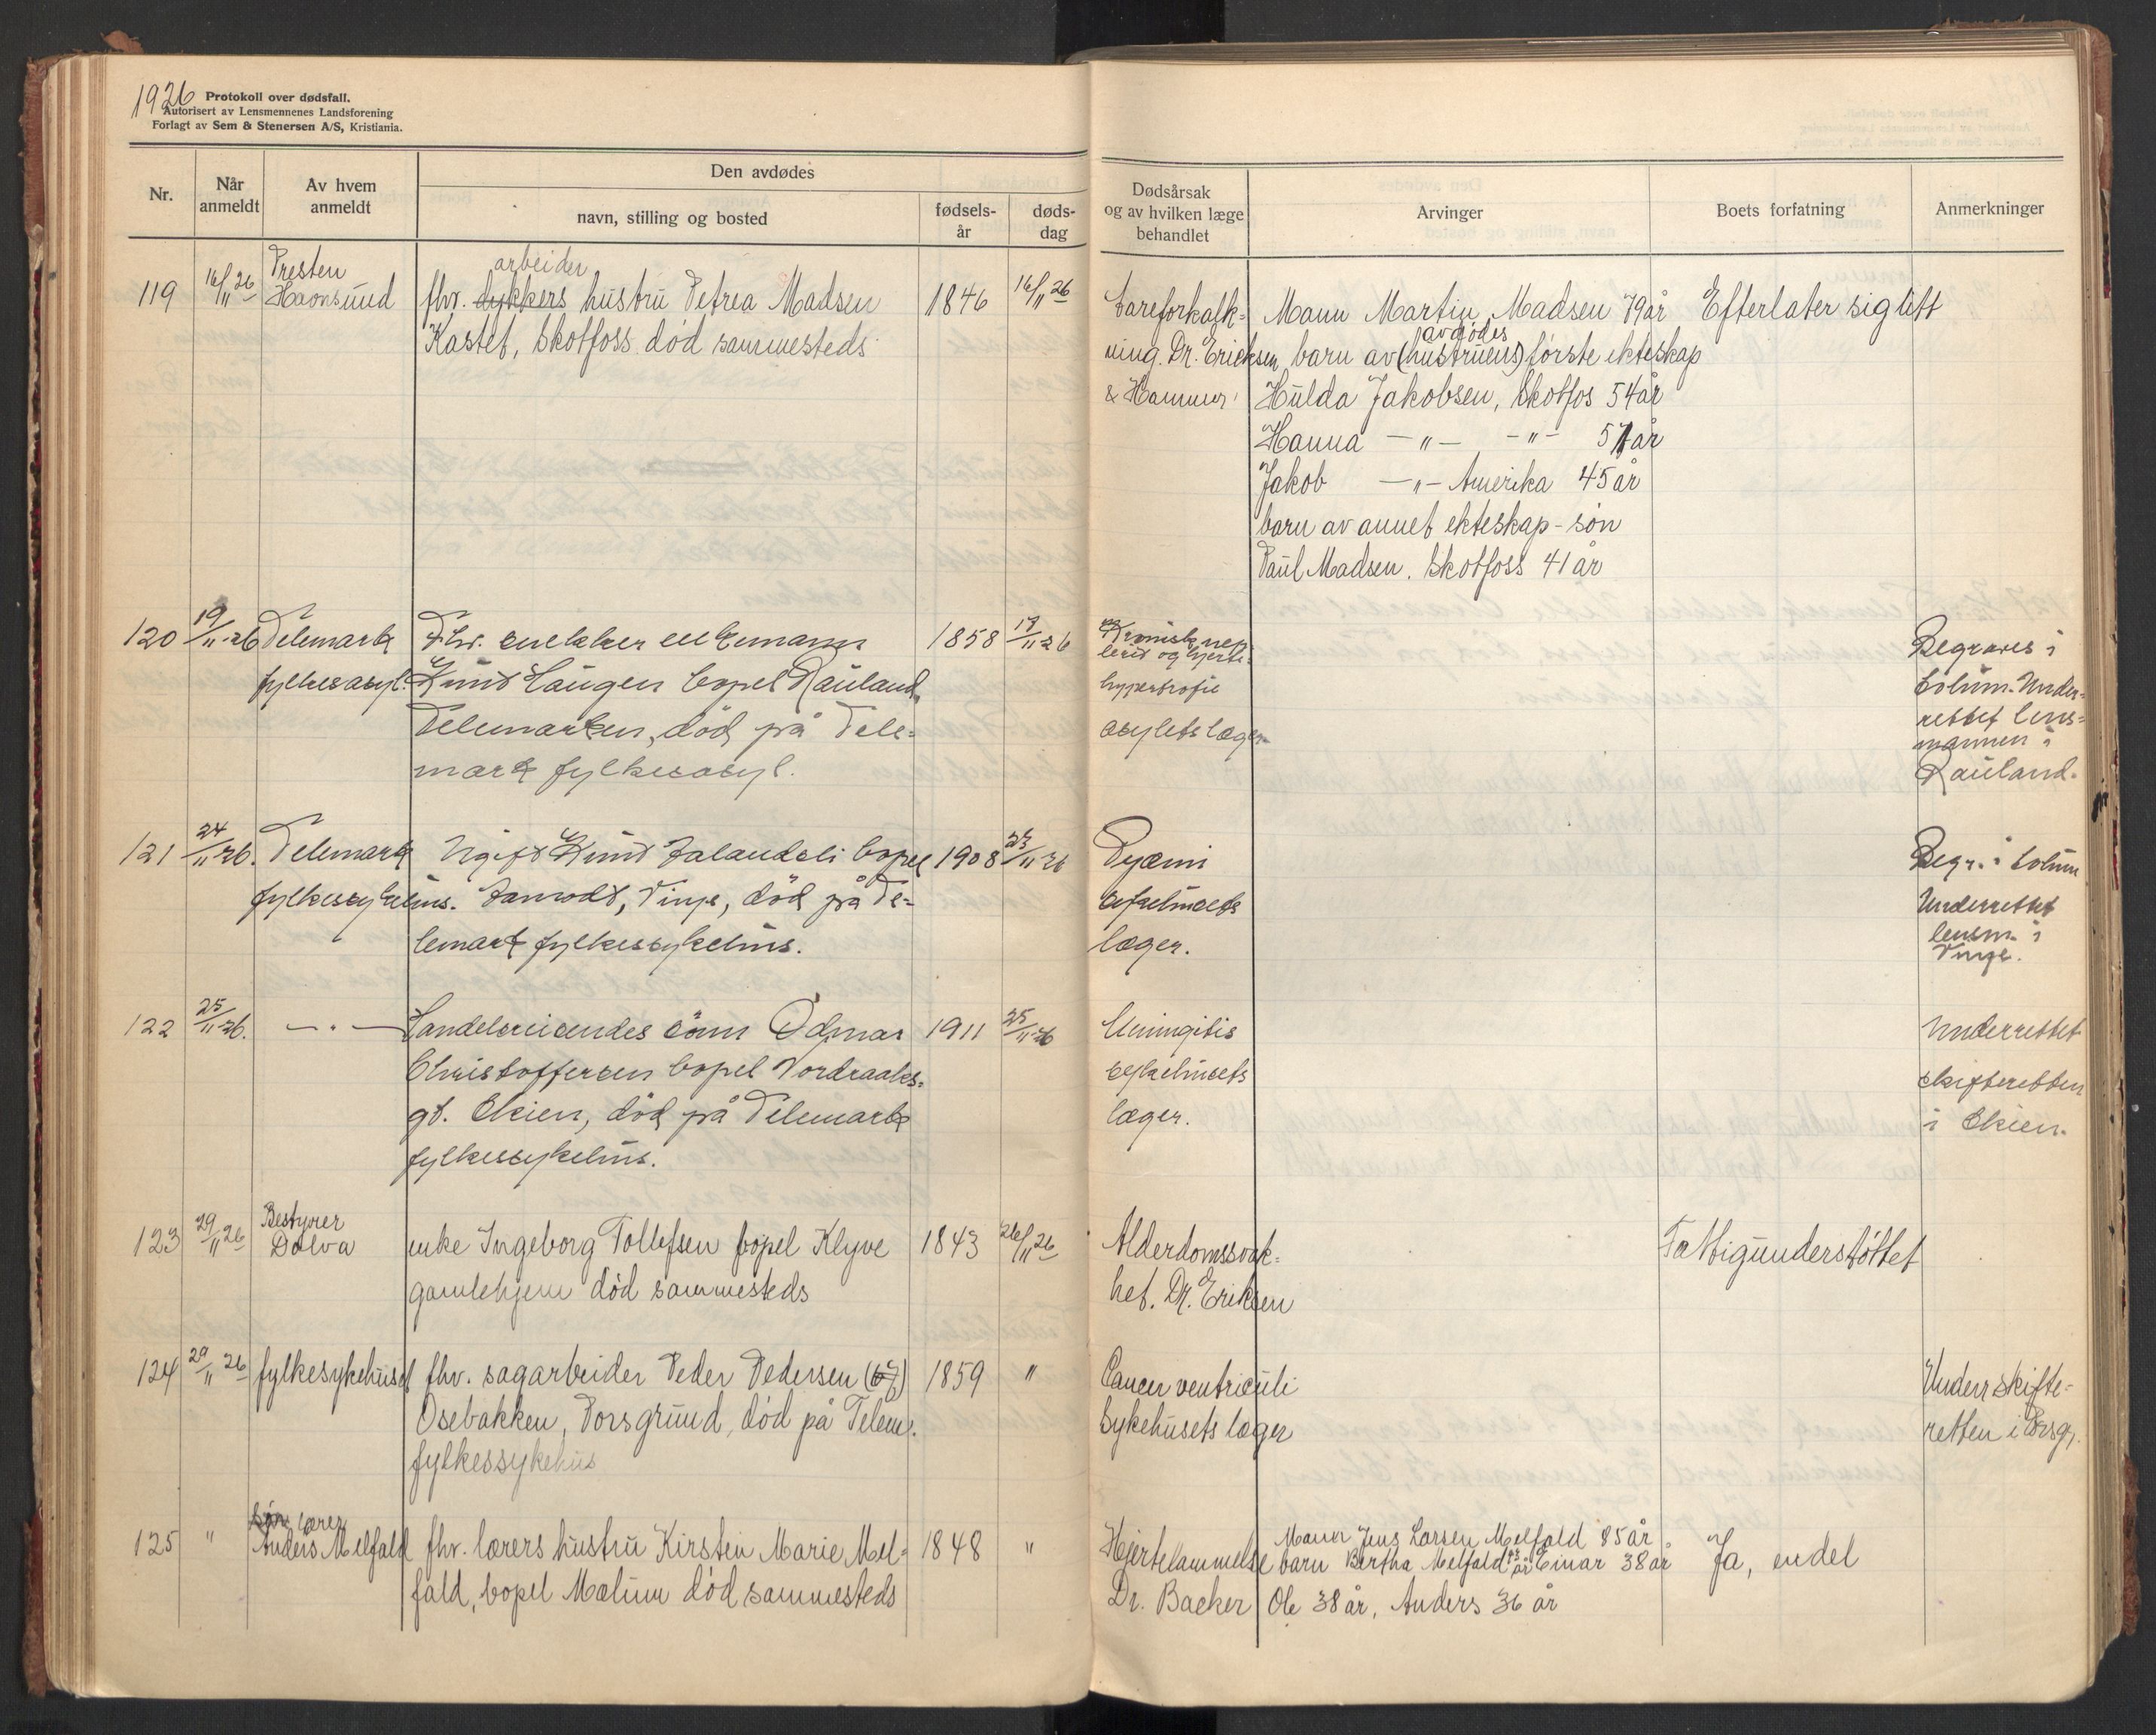 1926
Protokoll over dødsfall.
Autorisert av Lensmennenes Landsforening
Forlagt av Sem & Stenersen A/S, Kristiania.
Nr.
Når anmeldt
Av hvem anmeldt
Den avdødes
navn, stilling og bosted
fødsels-år
døds-dag
Dødsårsak og av hvilken læge behandlet
Arvinger
Boets forfatning
Anmerkninger
119 16/11 26 Presten Haonsund
arbeider
fhv. dykkers hustru Petrea Madsen 1846 16/11 26
Kastet, Skotfoss død sammesteds
Careforkalk=
ning. Dr. Ericksen
& Hammer
Mann Martin Madsen 79 år
avdødes
barn av (hustruens) første ekteskap
Hulda Jakobsen, Skotfos 54 år
Hanna — „ — - „ - 51 år
Jakob — „ — Amerika 45 år
barn av annet ekteskap - søn
Paul Madsen. Skotfoss 41 år
Efterlater sig litt
120 19/11-26 Telemark
fylkesasyl.
Fhv. enkemann
Knut Haugen bopel Rauland,
Telemarken, død på Tele=
mark fylkesasyl.
1858 17/11 26
Kronisk nef
og hjerte=
hypertrofie
asylets læger
Begraves i
Solum. Under=
rettet lens=
mannen i
Rauland.
121 24/11 26. Telemark
fylkessykehus.
Ugift Knut bopel
Vinje, død på Te=
lemark fylkessykehus.
1908 23/11 26
Pyæmi
sykehusets
læger.
Begr. i Solum
Underrettet
lensm. i
Vinje.
122 25/11 26. — „ —
Handelsreisendes sønn Odmar
Christoffersen bopel Nordraaks=
gt. Skien, død på Telemark
fylkessykehus.
1911 25/11 26
Meningitis
sykehusets
læger.
Underrettet
skifteretten
i Skien.
123 29/11 26 Bestyrer
Dolva
enke Ingeborg Tollefsen bopel Klyve
gamlehjem død sammesteds
1843 26/11 26
Alderdomssvak=
het. Dr. Eriksen
Fattigunderstøttet
124 29/11 26 fylkesykehuset
fhv. sagarbeider Peder Pedersen
Osebakken, Porsgrund, død på Telem.
fylkessykehus
1859 "
Cancer ventriculi
Sykehusets læger
Underr skifte=
retten i Porsgr.
125 " Søn lærer
Anders Melfald
fhv. lærers hustru Kirsten Marie Mel=
fald, bopel Mælum død sammesteds
1848 "
Hjertelammelse
Dr. Backer
Mann Jens Larsen Melfald 85 år
barn Bertha Melfald år Einar 38 år
Ole 38 år, Anders 36 år
Ja, endel